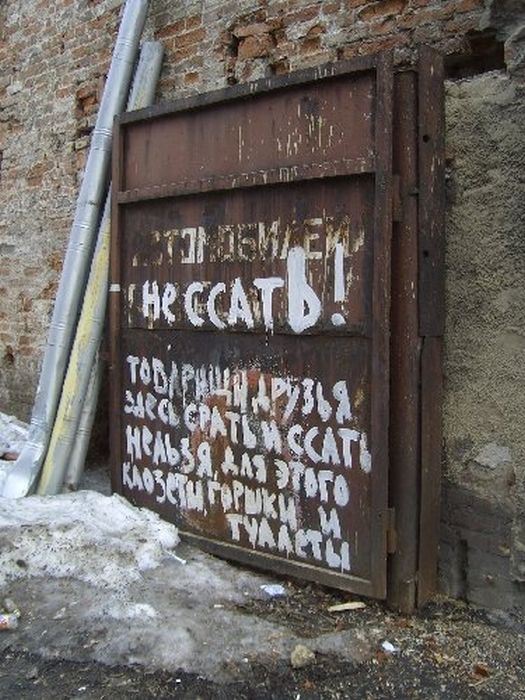 АВТОМОБИЛЕЙ
НЕ ССАТЬ!
ТОВАРИЩИ ДРУЗЬЯ
ЗДЕСЬ СРАТЬ И ССАТЬ
НЕЛЬЗЯ ДЛЯ ЭТОГО
КЛОЗЕТЫ, ГОРШКИ И
ТУАЛЕТЫ